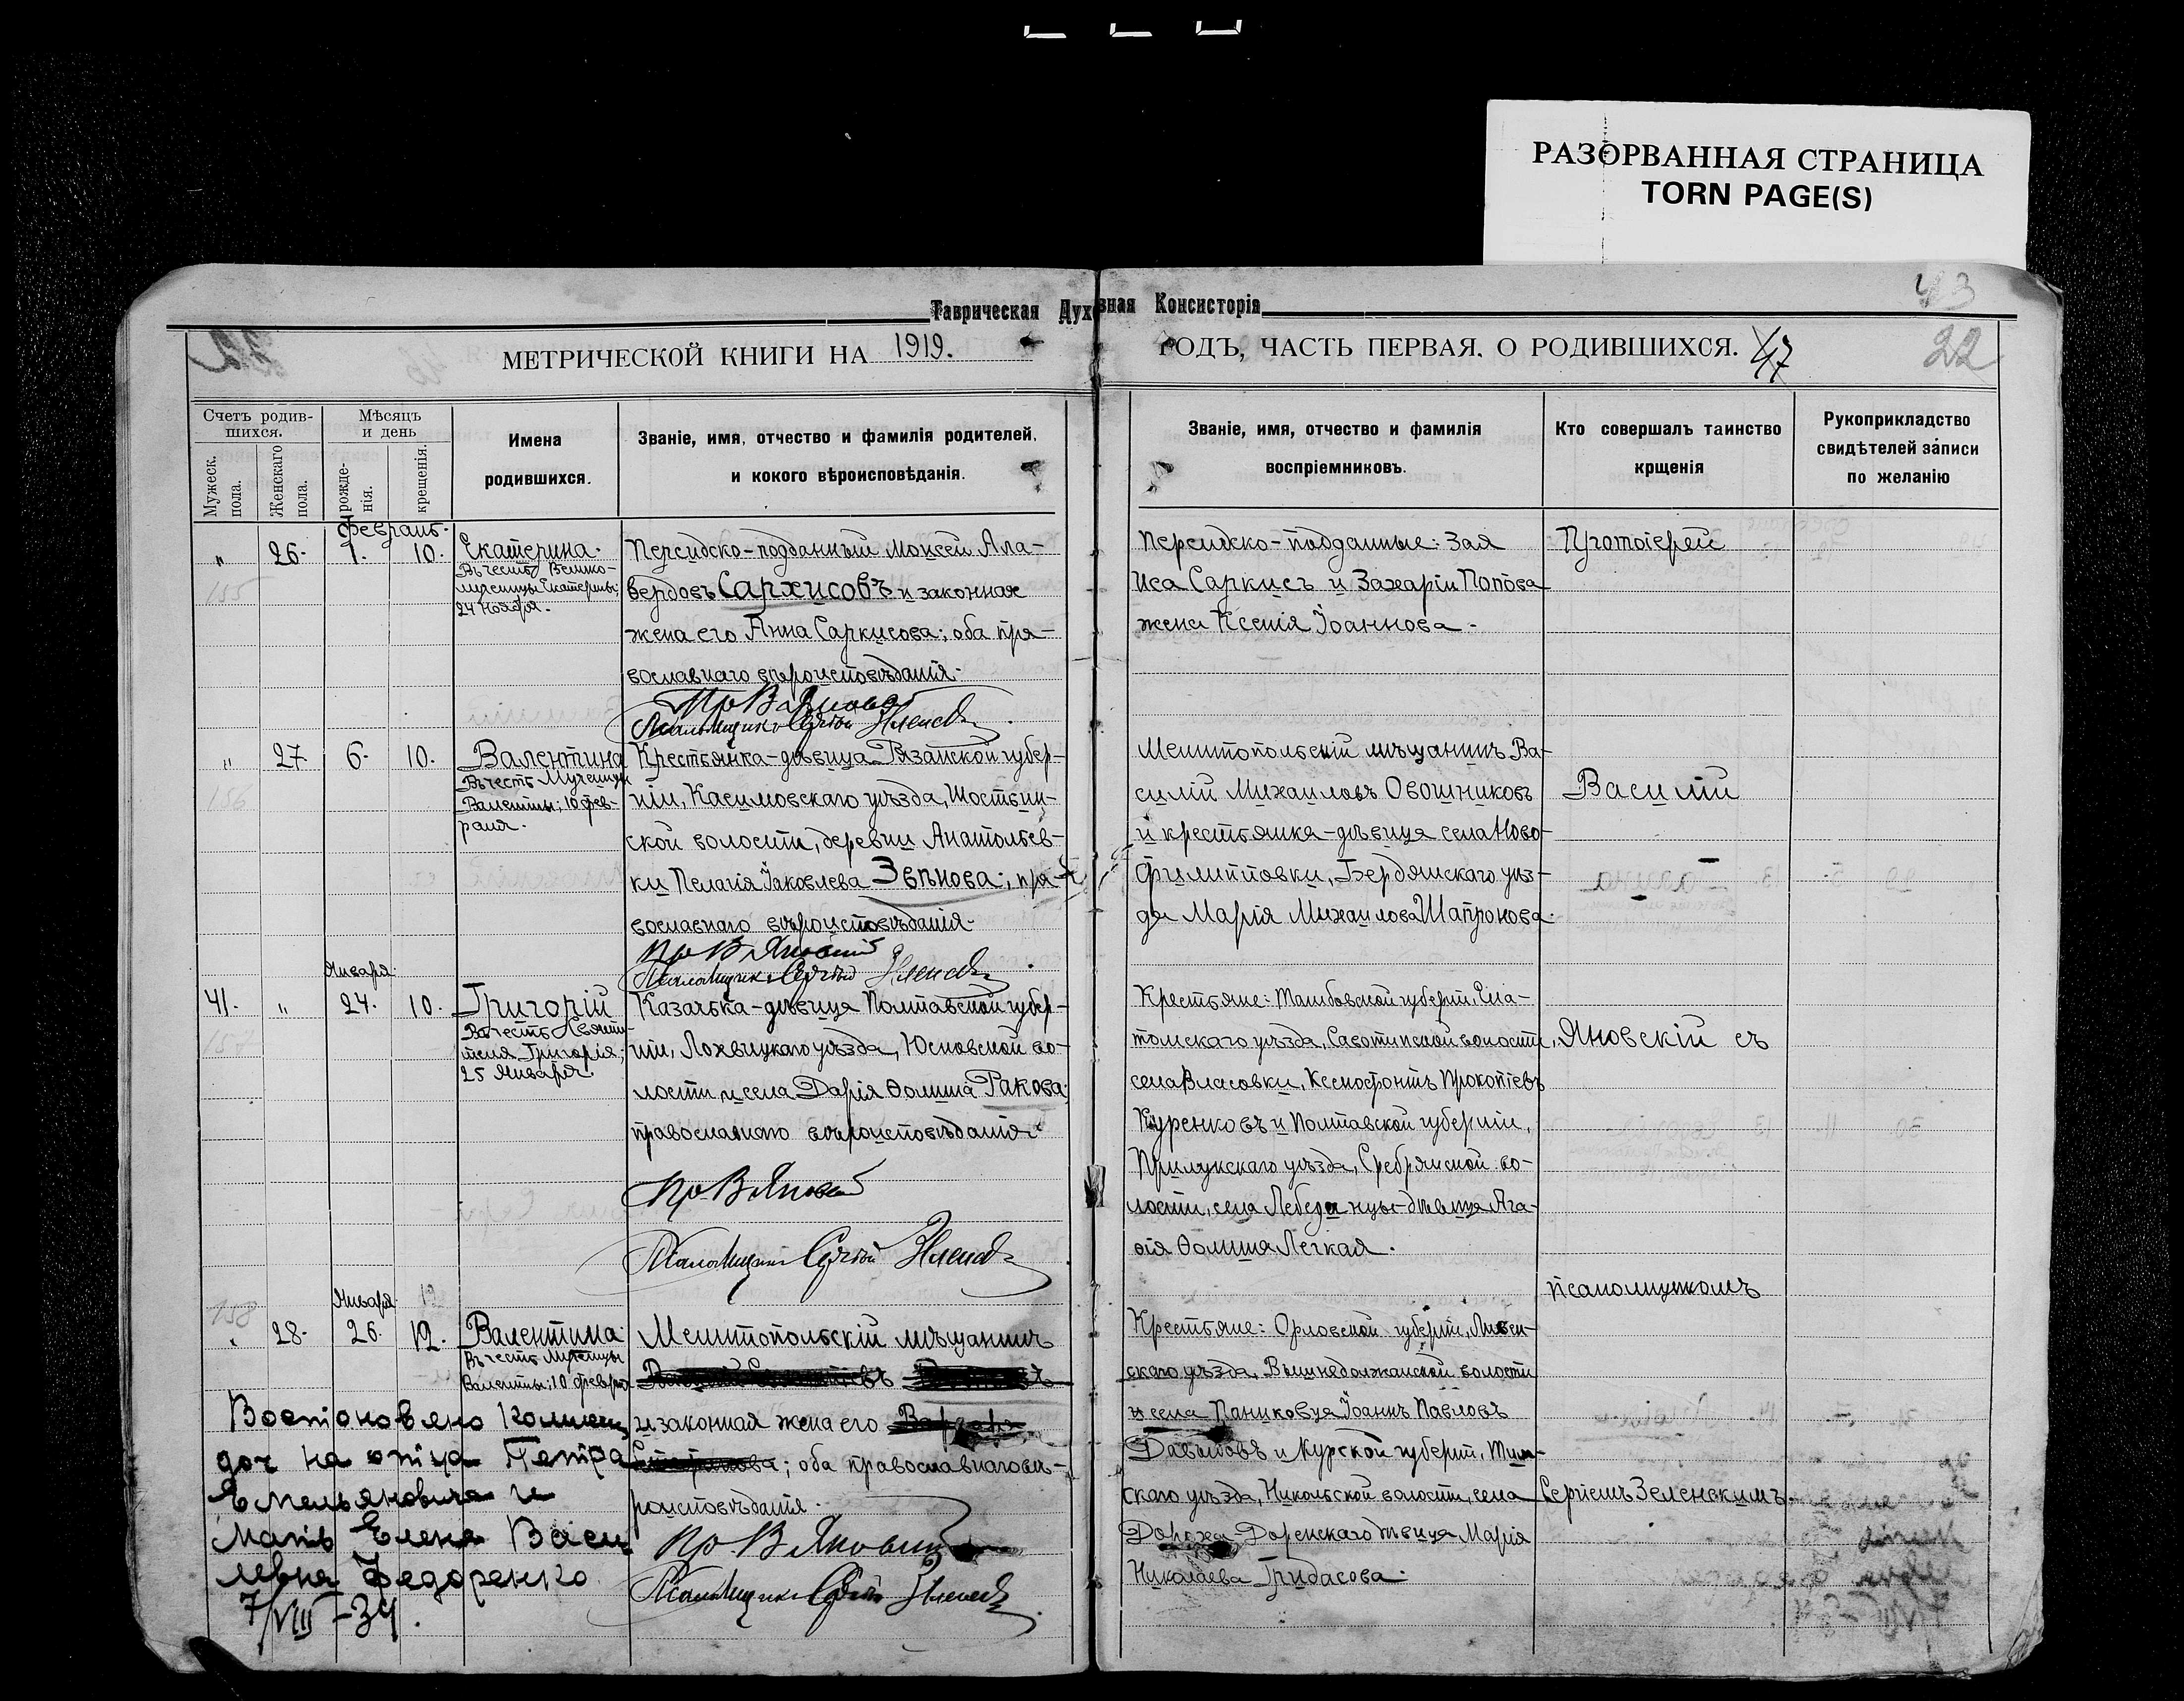 РАЗОРВАННАЯ СТРАНИЦА
TORN PAGE(S)
43
Таврическая Духовная Консисторія
МЕТРИЧЕСКОЙ КНИГИ НА 1919.
ГОДЪ, ЧАСТЬ ПЕРВАЯ. О РОДИВШИХСЯ. 47
22
Счетъ родив-
шихся.
Мужеск.
пола.
Женскаго
пола.
Мѣсяцъ
и день
рожде-
нія.
крещенія.
Имена
родившихся.
Званіе, имя, отчество и фамилія родителей,
и кокого вѣроисповѣданія.
Званіе, имя, отчество и фамилія
воспріемниковъ.
Кто совершалъ таинство
крщенія
Рукоприкладство
свидѣтелей записи
по желанію
" 26. 1. 10.
155
Екатерина.
Въ честь Велико-
мученицы Екатерины;
24 Ноября.
Персидско-подданный Моисей Ала-
вердовъ Сархисовъ и законная
жена его Анна Саркисова; оба пра-
вославнаго вѣроисповѣданія.
Персидско-подданные: Зая
Иса Саркисъ и Захаріи Попова
жена Ксенія Іоаннова.
Протоіерей
" 27. 6. 10.
156
Валентина
Въ честь Мученицы
Валентины; 10 фев-
раля.
Крестьянка-дѣвица Рязанской губер-
ніи, Касимовскаго уѣзда,
ской волости, деревни Анатольев-
ки Пелагія Іаковлева Звѣнова; пра-
вославнаго вѣроисповѣданія.
Мелитопольскій мѣщанинъ Ва-
силій Михаиловъ Овошниковъ
и крестьянка-дѣвица села Ново-
филипповки, Бердянскаго уѣз-
да Марія Михаилова Шапронова.
Василій
Января
41. " 24. 10.
157
Григорій
Въ честь Святи-
теля Григорія;
25 Января.
Казачка-дѣвица Полтавской губер-
ніи, Лохвицкаго уѣзда, Юсковской во-
лости и села Дарія Ѳомина Ракова;
православнаго вѣроисповѣданія.
Крестьяне: Тамбовской губерніи, Ела-
томскаго уѣзда, волости,
села Власовки, Ксенофонтъ Прокопіевъ
Куренковъ и Полтавской губерніи,
Прилукскаго уѣзда, Сребрянской во-
лости, села дѣвица Ага-
ѳія Ѳомина Легкая.
Яновскій съ
псаломщикомъ
158
Января
" 28. 26. 12.
Валентина
Въ честь Мученицы
Валентины; 10 февраля
Мелитопольскій мѣщанинъ
и законная жена его
; оба православнаго вѣ-
роисповѣданія.
на отца Петра
Емельяновича и
Мать Елена Васи
левна Федоренко
7/VIII-34.
Крестьяне: Орловской губерніи, Ливен-
скаго уѣзда, Вышнедолжанской волости
и села Паниковца Іоаннъ Павловъ
Давыдовъ и Курской губерніи, Тим-
скаго уѣзда, Никольской волости, села
дѣвица Марія
Николаева Грибасова.
Сергіемъ Зеленскимъ.